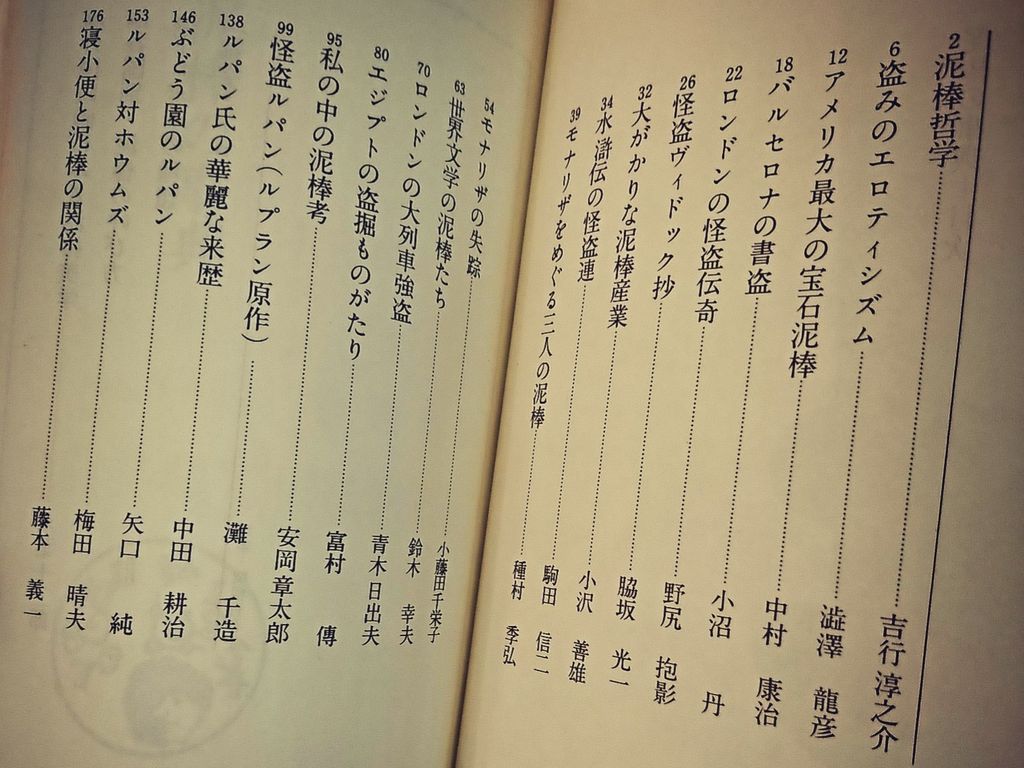 2 泥棒哲学……吉行淳之介
6 盗みのエロティシズム……澁澤 龍彦
12 アメリカ最大の宝石泥棒……中村 康治
18 バルセロナの書盗……小沼 丹
22 ロンドンの怪盗伝奇……野尻 抱影
26 怪盗ヴィドック抄……脇坂 光一
32 大がかりな泥棒産業……小沢 善雄
34 水滸伝の怪盗連……駒田 信二
39 モナリザをめぐる三人の泥棒……種村 季弘
54 モナリザの失踪……小藤田千栄子
63 世界文学の泥棒たち……鈴木 幸夫
70 ロンドンの大列車強盗……青木日出夫
80 エジプトの盗掘ものがたり……富村 傳
95 私の中の泥棒考……安岡章太郎
99 怪盗ルパン(ルブラン原作)……灘 千造
138 ルパン氏の華麗な来歴……中田 耕治
146 ぶどう園のルパン……矢口 純
153 ルパン対ホウムズ……梅田 晴夫
176 寝小便と泥棒の関係……藤本 義一